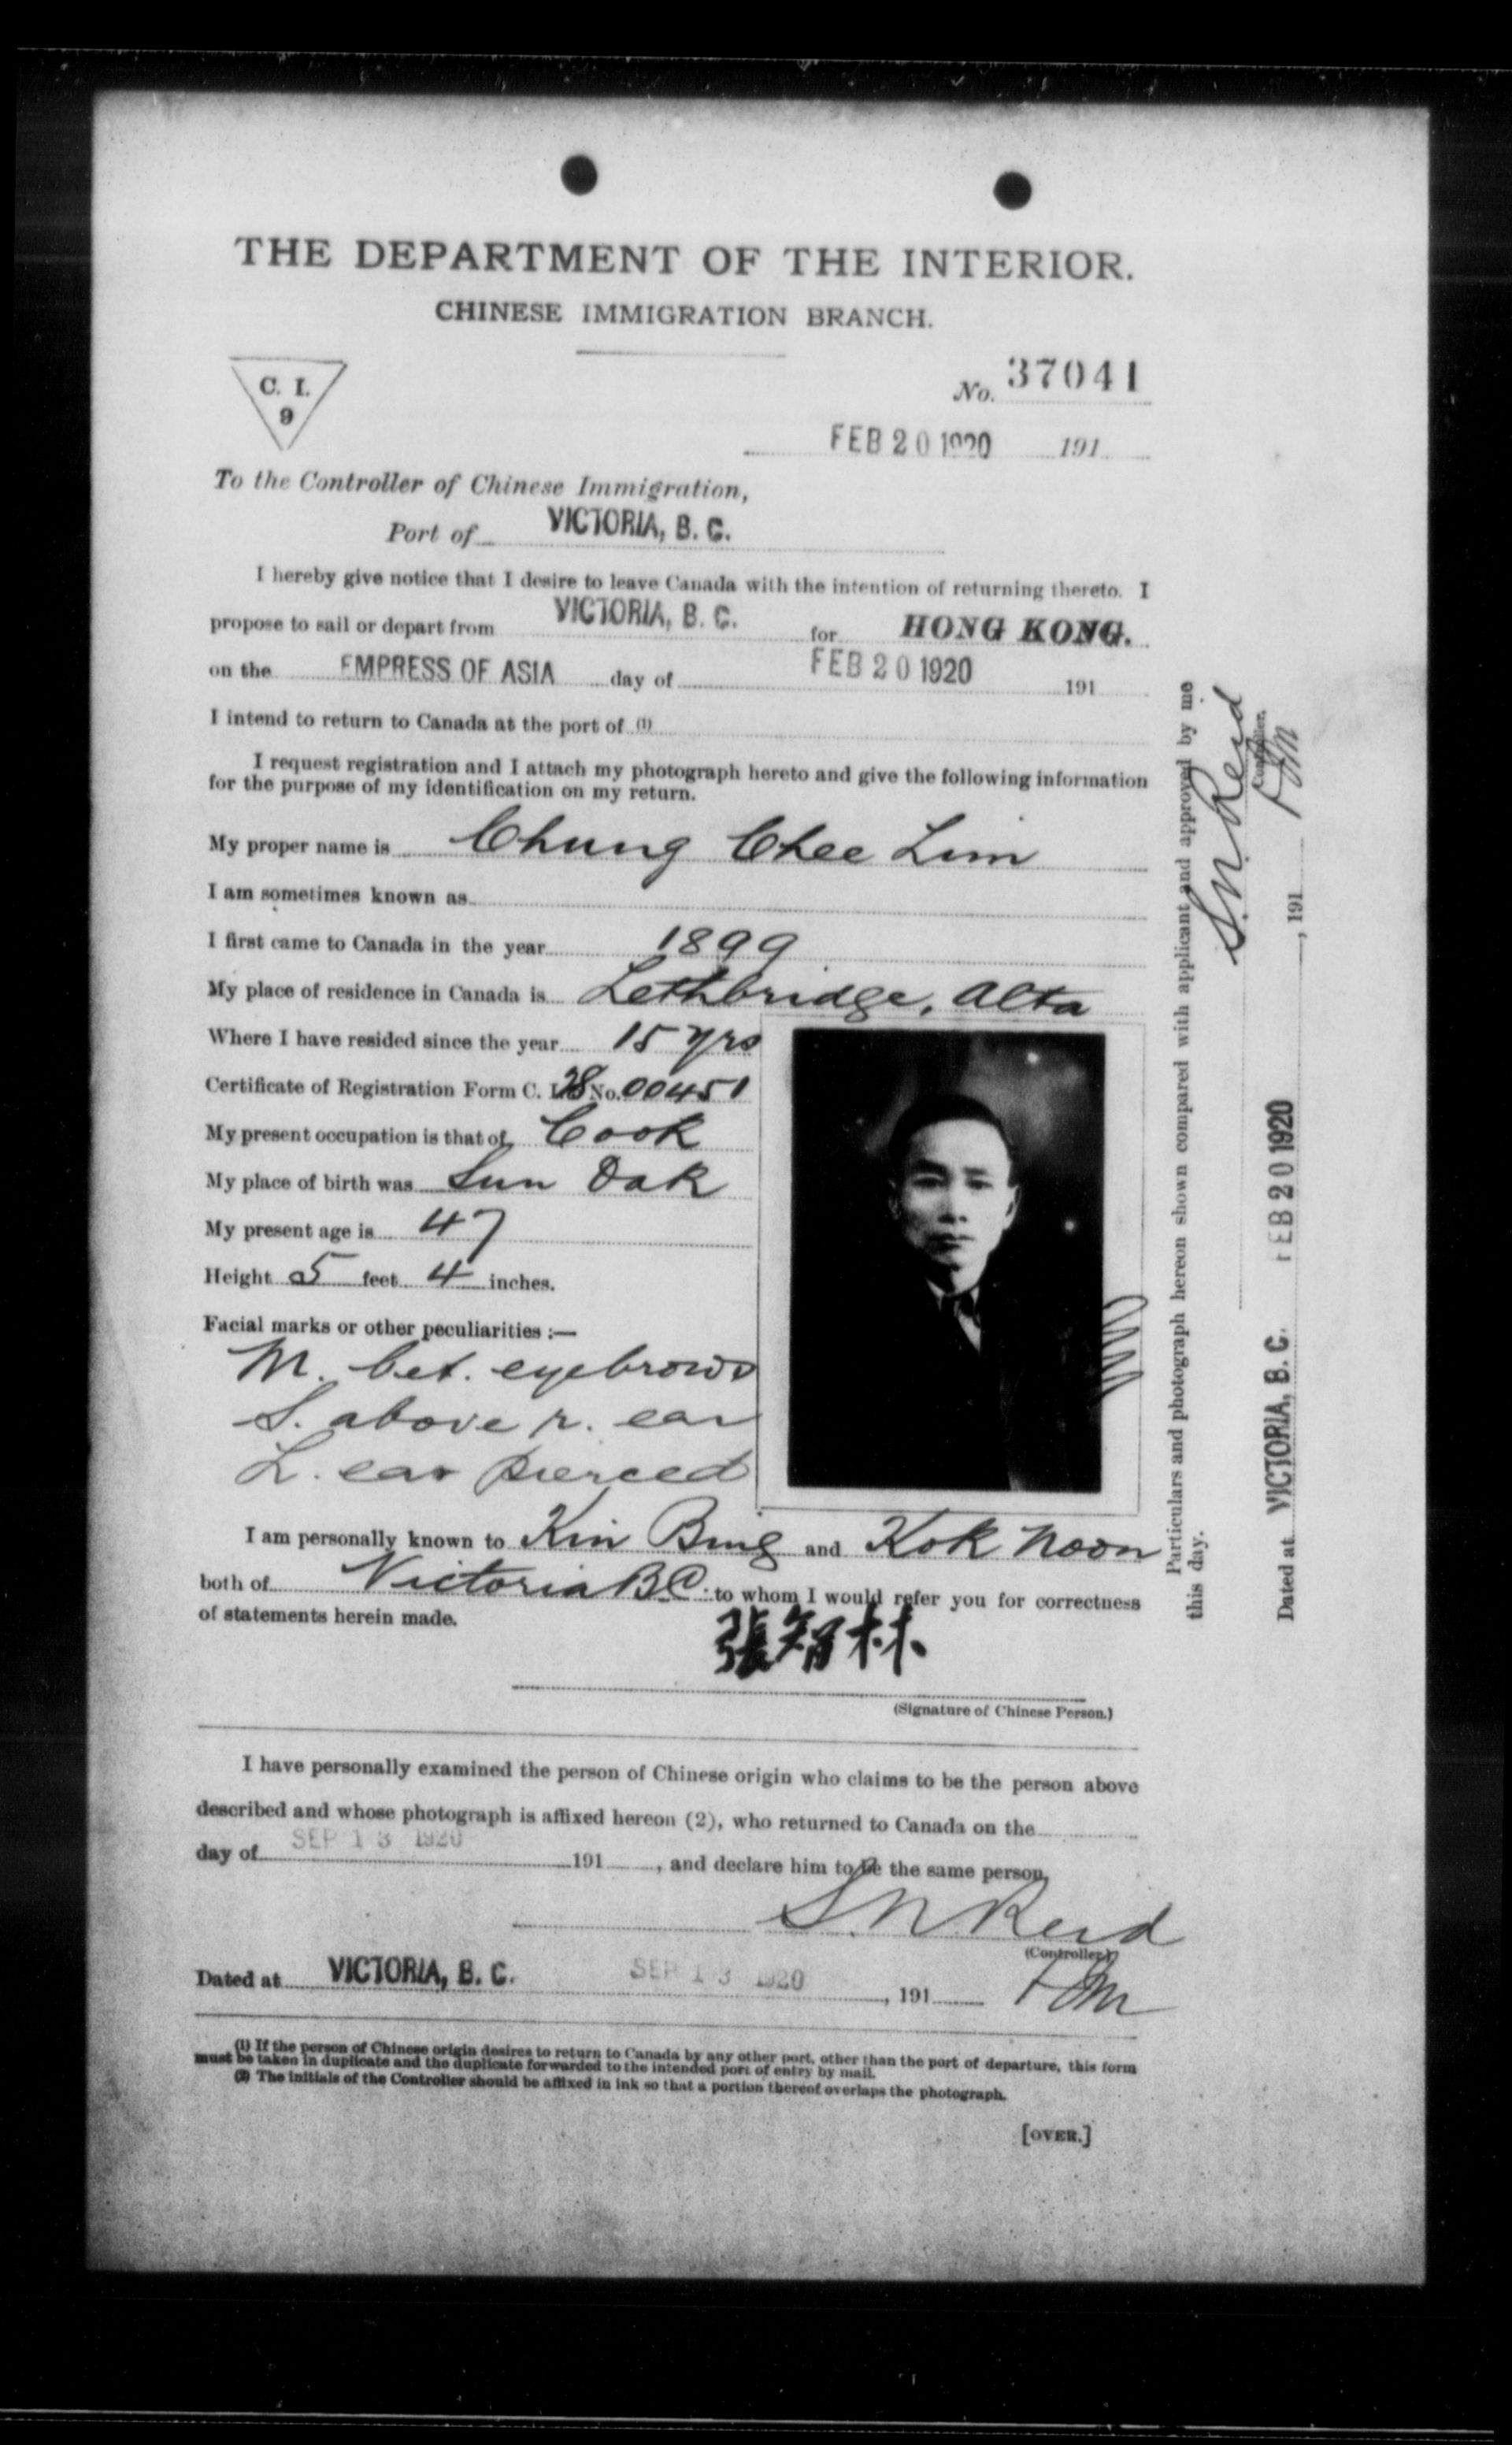 THE DEPARTMENT OF THE INTERIOR.
CHINESE IMMIGRATION BRANCH.
C. I.
9
No. 37041
FEB 20 1920 191
To the Controller of Chinese Immigration,
Port of VICTORIA, B. C.
I hereby give notice that I desire to leave Canada with the intention of returning thereto. I
propose to sail or depart from VICTORIA, B. C. for HONG KONG.
on the EMPRESS OF ASIA day of FEB 20 1920 191
I intend to return to Canada at the port of (1)
I request registration and I attach my photograph hereto and give the following information
for the purpose of my identification on my return.
My proper name is Chung Chee Lim
I am sometimes known as
I first came to Canada in the year 1899
My place of residence in Canada is Lethbridge, Alta
Where I have resided since the year 15 yrs
Certificate of Registration Form C. I. 28 No. 00451
My present occupation is that of Cook
My place of birth was Sun Dak
My present age is 47
Height 5 feet 4 inches.
Facial marks or other peculiarities :—
M. bet. eyebrows
S. above r. ear
L. ear pierced
I am personally known to Kin Bing and Kok Noon
both of Victoria BC to whom I would refer you for correctness
of statements herein made.
張智林
(Signature of Chinese Person.)
I have personally examined the person of Chinese origin who claims to be the person above
described and whose photograph is affixed hereon (2), who returned to Canada on the
day of SEP 13 1920 191 , and declare him to be the same person,
S. N. Reid
(Controller)
Dated at VICTORIA, B. C. SEP 13 1920 , 191
(1) If the person of Chinese origin desires to return to Canada by any other port, other than the port of departure, this form
must be taken in duplicate and the duplicate forwarded to the intended port of entry by mail.
(2) The initials of the Controller should be affixed in ink so that a portion thereof overlaps the photograph.
[OVER.]
Particulars and photograph hereon shown compared with applicant and approved by me
this day.
S. N. Reid
Controller.
Dated at VICTORIA, B. C. FEB 20 1920 , 191